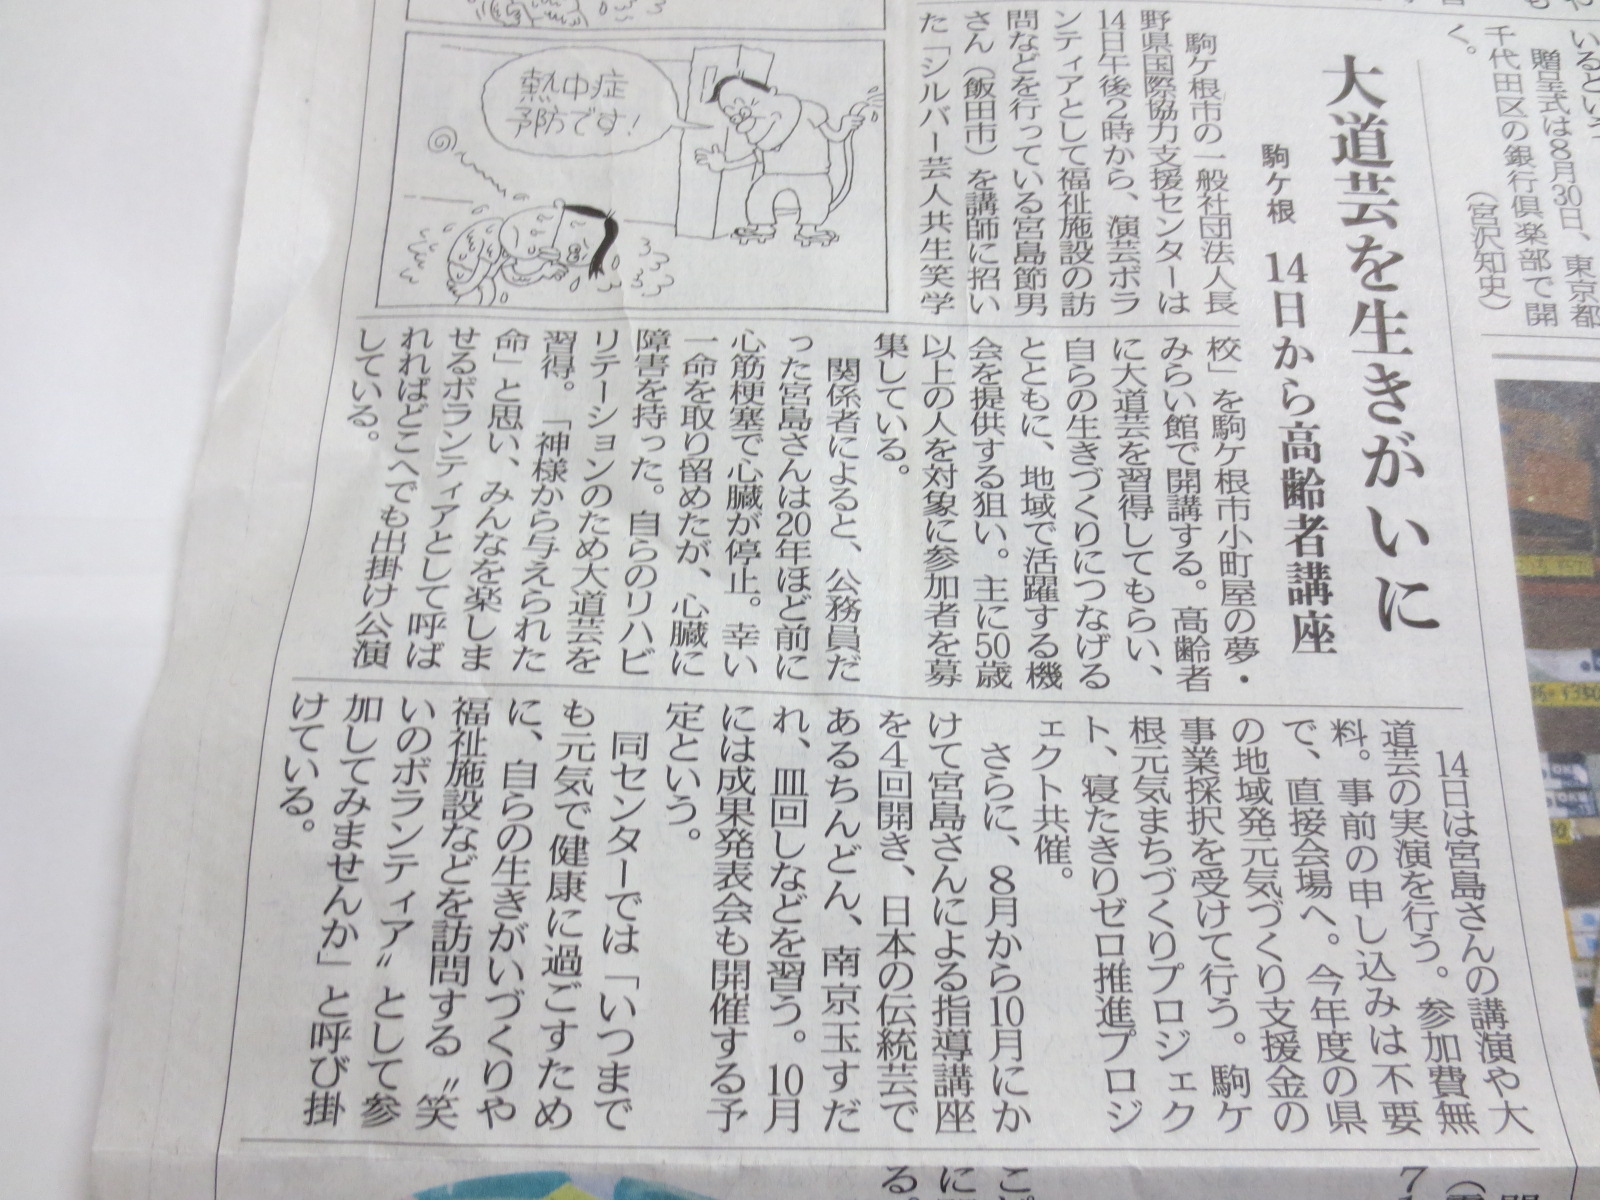 大道芸を生きがいに
駒ケ根 14日から高齢者講座
駒ケ根市の一般社団法人長
野県国際協力支援センターは
14日午後2時から、演芸ボラ
ンティアとして福祉施設の訪
問などを行っている宮島節男
さん（飯田市）を講師に招い
た「シルバー芸人共生笑学
校」を駒ケ根市小町屋の夢・
みらい館で開講する。高齢者
に大道芸を習得してもらい、
自らの生きづくりにつなげる
とともに、地域で活躍する機
会を提供する狙い。主に50歳
以上の人を対象に参加者を募
集している。
関係者によると、公務員だ
った宮島さんは20年ほど前に
心筋梗塞で心臓が停止。幸い
一命を取り留めたが、心臓に
障害を持った。自らのリハビ
リテーションのため大道芸を
習得。「神様から与えられた
命」と思い、みんなを楽しま
せるボランティアとして呼ば
れればどこへでも出掛け公演
している。
14日は宮島さんの講演や大
道芸の実演を行う。参加費無
料。事前の申し込みは不要
で、直接会場へ。今年度の県
の地域発元気づくり支援金の
事業採択を受けて行う。駒ケ
根元気まちづくりプロジェク
ト、寝たきりゼロ推進プロジ
ェクト共催。
さらに、8月から10月にか
けて宮島さんによる指導講座
を4回開き、日本の伝統芸で
あるちんどん、南京玉すだ
れ、皿回しなどを習う。10月
には成果発表会も開催する予
定という。
同センターでは「いつまで
も元気で健康に過ごすため
に、自らの生きがいづくりや
福祉施設などを訪問する〝笑
いのボランティア〟として参
加してみませんか」と呼び掛
けている。
熱中症
予防です!
いるという
贈呈式は8月30日、東京都
千代田区の銀行倶楽部で開
く。
（宮沢知史）